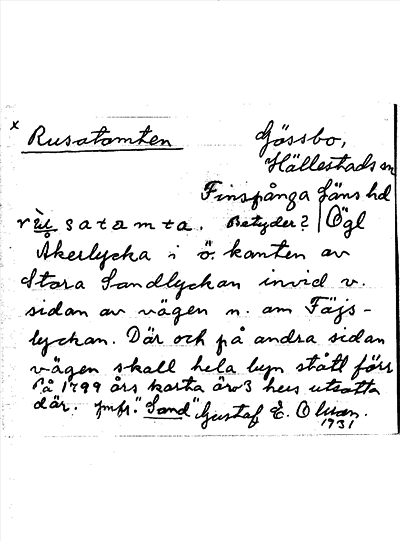 x Rusatomten
Gössbo,
Hällestads sn
Finspånga läns hd
Ögl
satamta. Betyder?
Åkerlycka i ö. kanten av
Stora Sandlyckan invid v.
sidan av vägen n. om Fäjs-
lyckan. Där och på andra sidan
vägen skall hela byn stått förr
På 1799 års karta äro 3 hus utsatta
där. Jmfr. "Sand" Gustaf E. Olsson.
1931